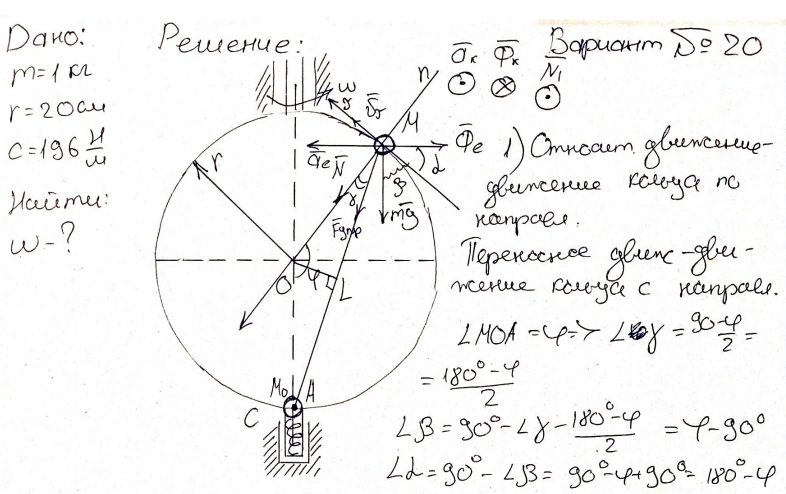 Дано:
m=1 кг
r=20см
c=196 Н/м
Найти:
ω-?
Решение:
Вариант № 20
n
a̅к Φ̅к N̅₁
ω
V̅r
M
Φ̅e
a̅e
N̅
α
β
γ
mg̅
F̅упр
r
O
φ
L
M₀ A
C
1) Относит. движение-
движение кольца по
направл.
Переносное движ-дви-
жение кольца с направл.
∠MOA = φ => ∠γ = 90-φ/2 =
= 180°-φ/2
∠β = 90°-∠γ - 180°-φ/2 = φ-90°
∠α = 90°-∠β = 90°-φ+90° = 180°-φ